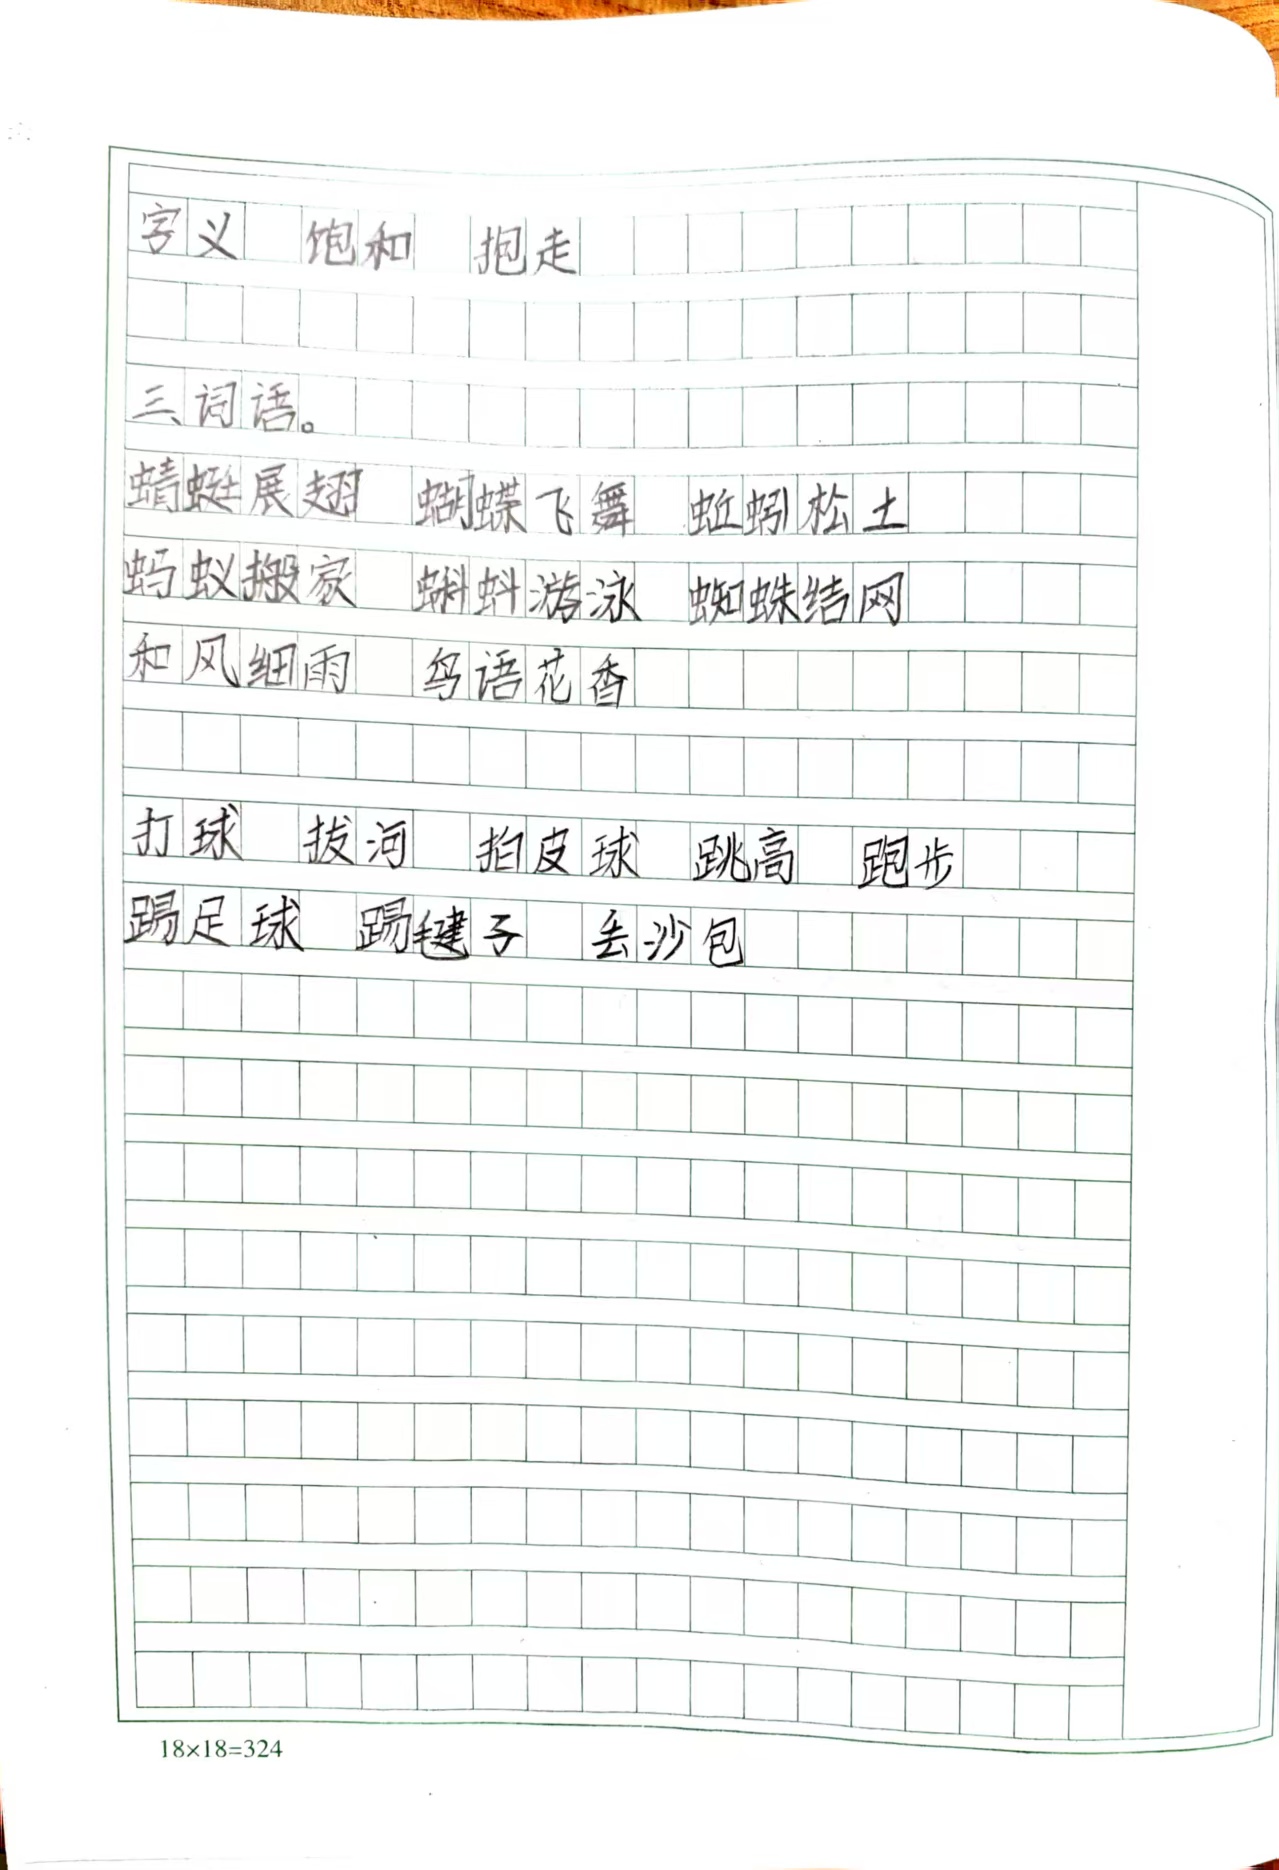 字义 饱和 抱走
三、词语。
蜻蜓展翅 蝴蝶飞舞 蚯蚓松土
蚂蚁搬家 蝌蚪游泳 蜘蛛结网
和风细雨 鸟语花香
打球 拔河 拍皮球 跳高 跑步
踢足球 踢毽子 丢沙包
18×18=324